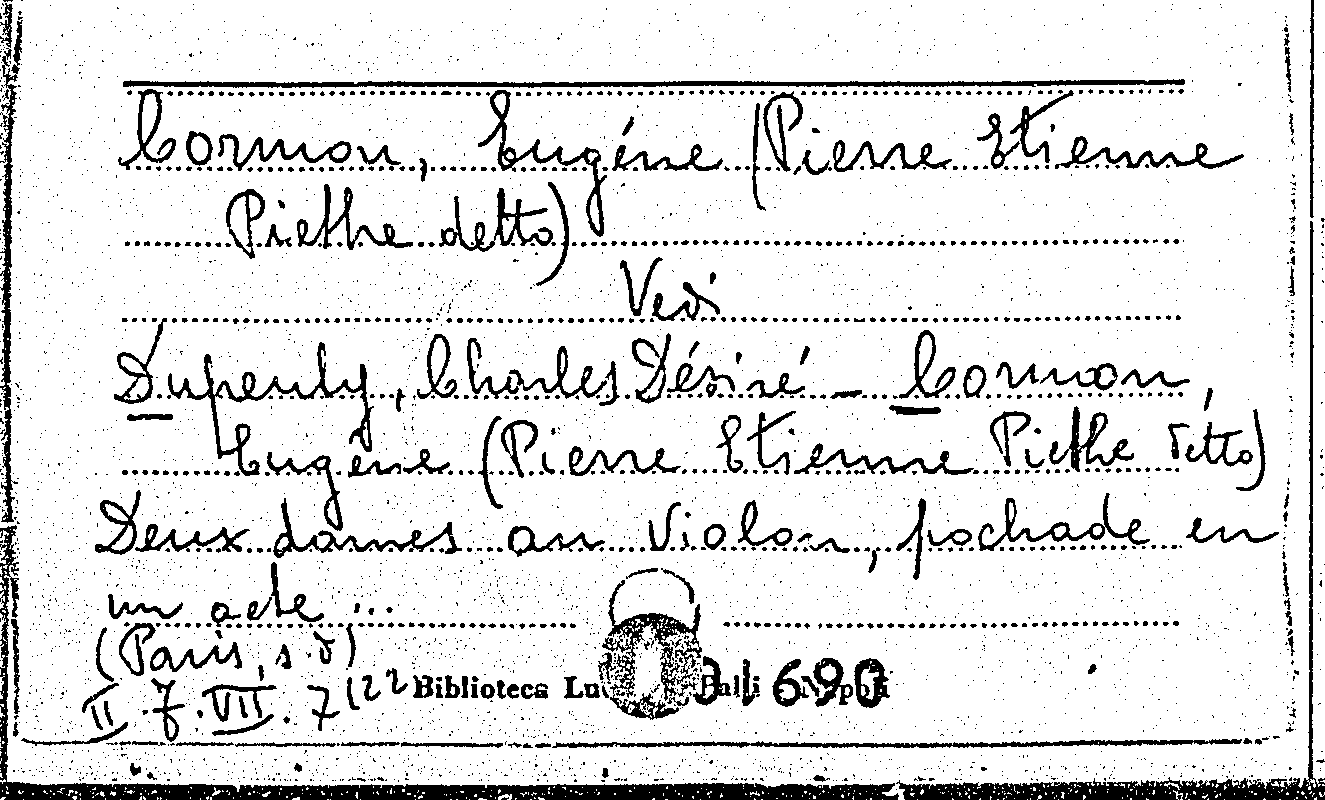 Cormon, Eugéne (Pierre Etienne
Piethe detto)
Vedi
Dupeuty, Charles Désiré - Cormon,
Eugêne (Pierre Etienne Piethe detto)
Deux dames au Violon, pochade en
un acte ...
(Paris, s.d)
II. 7. VII. 7 (22
Biblioteca Lu Palli Napoli
31690